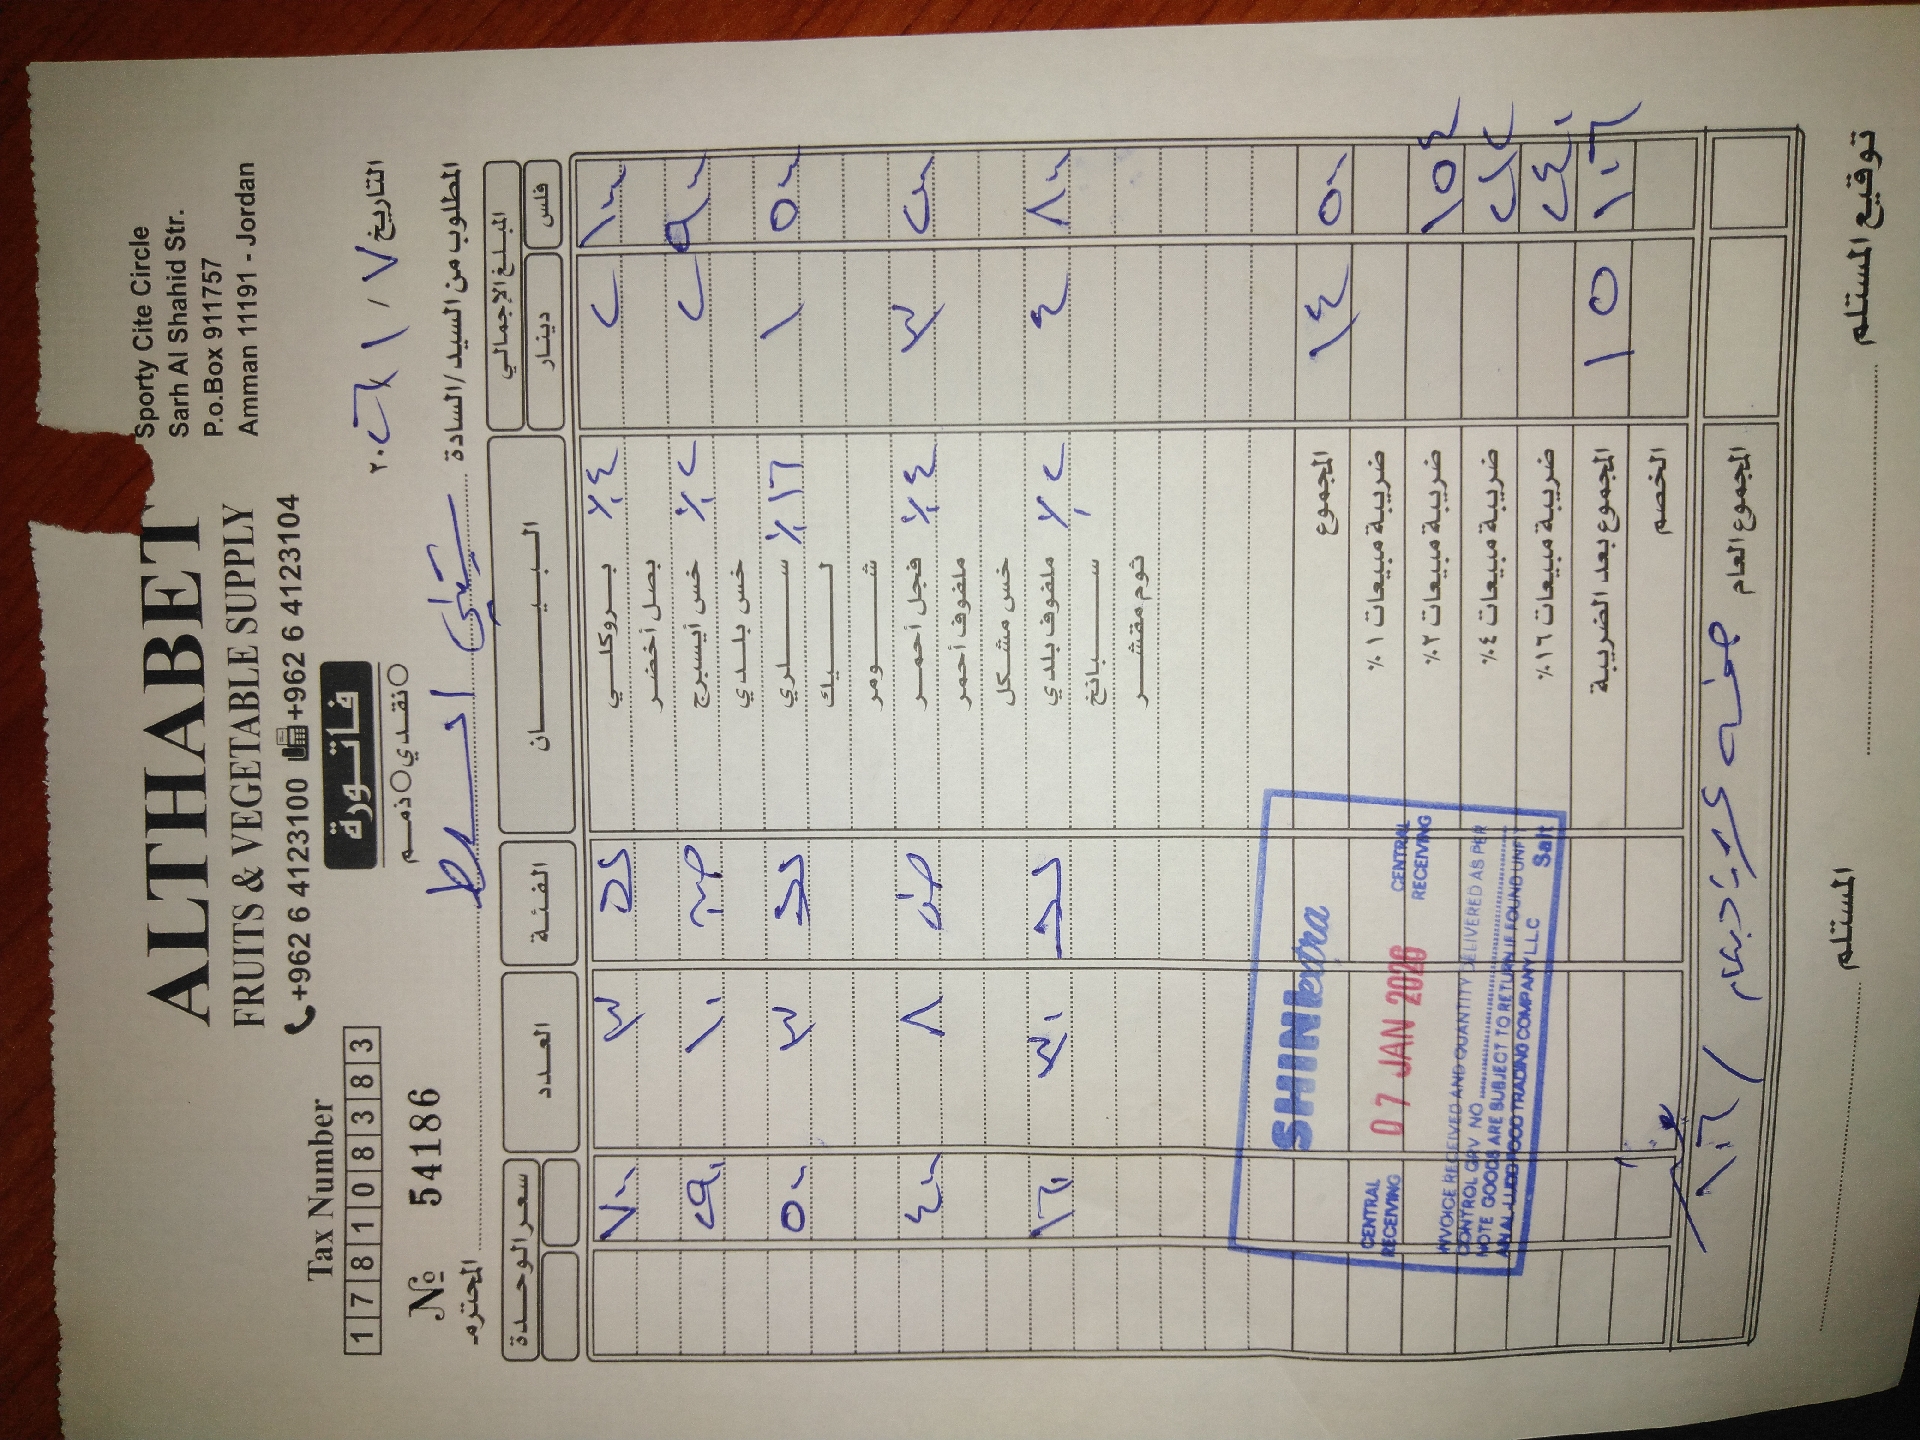 ALTHABET
FRUITS & VEGETABLE SUPPLY
+962 6 4123100 +962 6 4123104
Sporty Cite Circle
Sarh Al Shahid Str.
P.o.Box 911757
Amman 11191 - Jordan
Tax Number
1 7 8 1 0 8 3 8 3
فاتورة
نقدي ذمم
№ 54186
التاريخ ٧ / ١ / ٢٠٢٠
المطلوب من السيد/السادة
المحترم
سعر الوحدة العدد الفئة البيان المبلغ الإجمالي
دينار فلس
٧٠٠ ٣ بروكلي ٤٪ ٢ ١٠٠
بصل أخضر
٢٩٠ ١٠ خس أيسبرج ٢٪ ٢ ٩٠٠
خس بلدي
٥٠٠ ٣ سلري ١٦٪ ١ ٥٠٠
ليك
شومر
٤٠٠ ٨ فجل أحمر ٤٪ ٣ ٢٠٠
ملفوف أحمر
خس مشكل
١٦٠ ٣٠ ملفوف بلدي ٢٪ ٤ ٨٠٠
سبانخ
ثوم مقشر
المجموع ١٤ ٥٠٠
ضريبة مبيعات ١٪
ضريبة مبيعات ٢٪ ١٥٤
ضريبة مبيعات ٤٪ ٢١٢
ضريبة مبيعات ١٦٪ ٢٤٠
المجموع بعد الضريبة ١٥ ١٠٦
الخصم
المجموع العام
SHINI extra
CENTRAL RECEIVING 07 JAN 2020 CENTRAL RECEIVING
INVOICE RECEIVED AND QUANTITY DELIVERED AS PER
CONTROL GRV NO
NOTE GOODS ARE SUBJECT TO RETURN IF FOUND UNFIT
FOOD TRADING COMPANY LLC Salt
المستلم توقيع المستلم